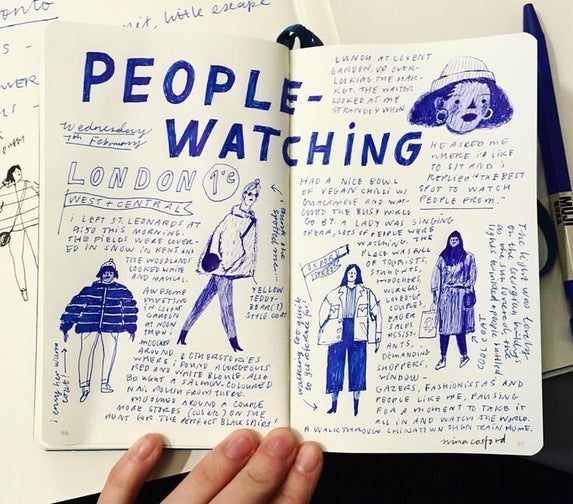 PEOPLE-
WATCHING
Wednesday
7th February
LONDON 1°c
WEST + CENTRAL
I LEFT ST. LEONARDS AT
9:50 THIS MORNING.
THE FIELDS WERE COVER-
ED IN SNOW IN KENT AND
THE WOODLAND
LOOKED WHITE
AND MAGICAL.
AWESOME
MEETING
IN COVENT
GARDEN
AT NOON
THEN I
MOOCHED
AROUND & OTHER STORIES
WHERE I FOUND A GORGEOUS
RED AND WHITE BLOUSE. ALSO
BOUGHT A SALMON-COLOURED
NAIL POLISH FROM THERE.
MOOCHED AROUND A COUPLE
MORE STORES (COS ETC) ON THE
HUNT FOR THE PERFECT BLACK
i envy her warm
i think she
spotted me
YELLOW
TEDDY-
BEAR(!)
STYLE COAT
96
LUNCH AT COVENT
GARDEN, UP OVER-
LOOKING THE MAR-
KET. THE WAITER
LOOKED AT ME
STRANGELY WHEN
HE ASKED ME
WHERE I'D LIKE
TO SIT AND I
REPLIED "THE BEST
SPOT TO WATCH
PEOPLE FROM."
HAD A NICE BOWL
OF VEGAN CHILLI W/
GUACAMOLE AND WAT-
CHED THE BUSY WORLD
GO BY. A LADY WAS SINGING
OPERA, LOTS OF PEOPLE WERE
WATCHING. THE
PLACE WAS FULL
OF TOURISTS,
STUDENTS,
MOOCHERS,
WORKERS,
LOVED-UP
COUPLES,
EAGER
SALES
ASSIST-
ANTS,
DEMANDING
SHOPPERS,
WINDOW-
GAZERS, FASHIONISTAS AND
PEOPLE LIKE ME, PAUSING
FOR A MOMENT TO TAKE IT
ALL IN AND WATCH THE WORLD.
A WALK THROUGH CHINATOWN THEN TRAIN HOME.
OXFORD
STREET
COOL COAT
The light was lovely
on the Georgian buildings
nina cosford
97
MUJI